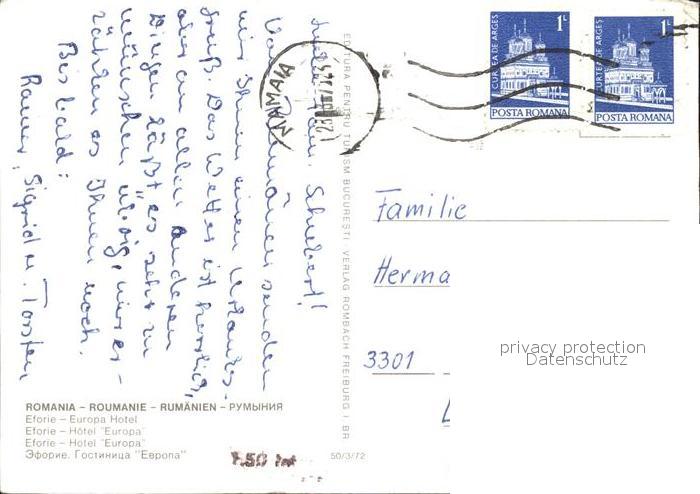 Liebe Fam. Schubert!
Von Rumänien senden
wir Ihnen einen Urlaubs-
gruß. Das Wetter ist herrlich,
aber an allen anderen
Dingen läßt es sehr zu
wünschen übrig, wir er-
zählen es Ihnen noch.
Bis bald:
Rainer, Sigrid u. Torsten
ROMANIA – ROUMANIE – RUMÄNIEN – РУМЫНИЯ
Eforie – Europa Hotel
Eforie – Hôtel "Europa"
Eforie – Hotel "Europa"
Эфорие. Гостиница "Европа"
50/3/72
EDITURA PENTRU TURISM BUCURESTI VERLAG ROMBACH FREIBURG I BR
MAMAIA
CURTEA DE ARGEŞ
1L
POSTA ROMANA
CURTEA DE ARGEŞ
1L
POSTA ROMANA
Familie
Herma
3301
privacy protection
Datenschutz